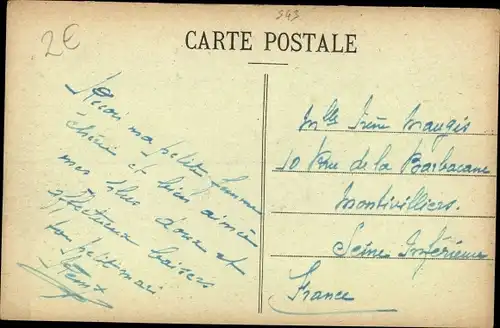 2€
343
CARTE POSTALE
Reçois ma petite femme
chérie et bien aimée
mes plus doux et
affectueux baisers
ton petit mari
Rémy
Mlle Irène Maugis
10 Rue de la Barbacane
Montivilliers
Seine Inférieure
France